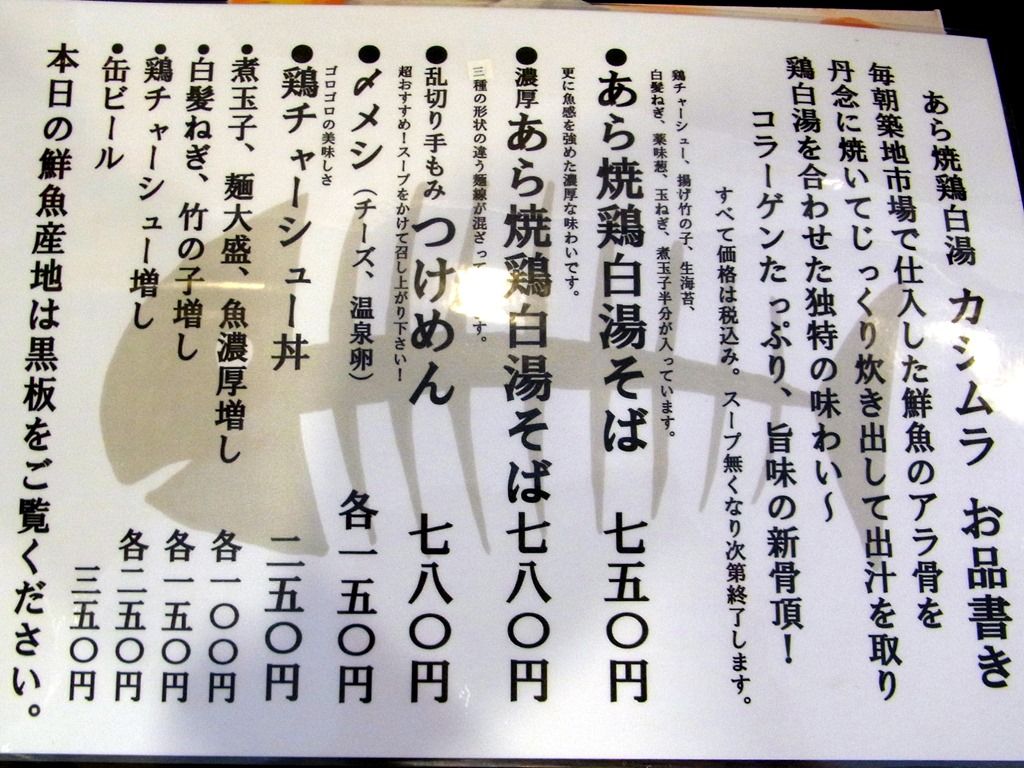 あら焼鶏白湯 カシムラ お品書き
毎朝築地市場で仕入した鮮魚のアラ骨を
丹念に焼いてじっくり炊き出して出汁を取り
鶏白湯を合わせた独特の味わい〜
コラーゲンたっぷり、旨味の新骨頂！
すべて価格は税込み。スープ無くなり次第終了します。
鶏チャーシュー、揚げ竹の子、生海苔、
白髪ねぎ、薬味葱、玉ねぎ、煮玉子半分が入っています。
●あら焼鶏白湯そば 七五〇円
更に魚感を強めた濃厚な味わいです。
●濃厚あら焼鶏白湯そば七八〇円
三種の形状の違う麺線が混ざって す。
●乱切り手もみ つけめん 七八〇円
超おすすめ！スープをかけて召し上がり下さい！
●〆メシ（チーズ、温泉卵） 各一五〇円
ゴロゴロの美味しさ
●鶏チャーシュー丼 二五〇円
●煮玉子、麺大盛、魚濃厚増し 各一〇〇円
●白髪ねぎ、竹の子増し 各一五〇円
●鶏チャーシュー増し 各二五〇円
●缶ビール 三五〇円
本日の鮮魚産地は黒板をご覧ください。